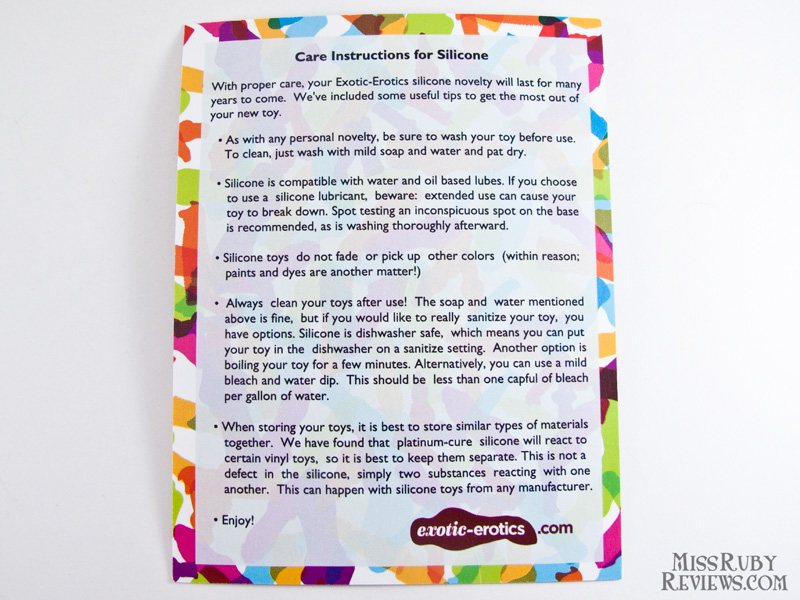 Care Instructions for Silicone
With proper care, your Exotic-Erotics silicone novelty will last for many
years to come. We've included some useful tips to get the most out of
your new toy.
• As with any personal novelty, be sure to wash your toy before use.
To clean, just wash with mild soap and water and pat dry.
• Silicone is compatible with water and oil based lubes. If you choose
to use a silicone lubricant, beware: extended use can cause your
toy to break down. Spot testing an inconspicuous spot on the base
is recommended, as is washing thoroughly afterward.
• Silicone toys do not fade or pick up other colors (within reason;
paints and dyes are another matter!)
• Always clean your toys after use! The soap and water mentioned
above is fine, but if you would like to really sanitize your toy, you
have options. Silicone is dishwasher safe, which means you can put
your toy in the dishwasher on a sanitize setting. Another option is
boiling your toy for a few minutes. Alternatively, you can use a mild
bleach and water dip. This should be less than one capful of bleach
per gallon of water.
• When storing your toys, it is best to store similar types of materials
together. We have found that platinum-cure silicone will react to
certain vinyl toys, so it is best to keep them separate. This is not a
defect in the silicone, simply two substances reacting with one
another. This can happen with silicone toys from any manufacturer.
• Enjoy!
exotic-erotics.com
MissRuby
Reviews.com